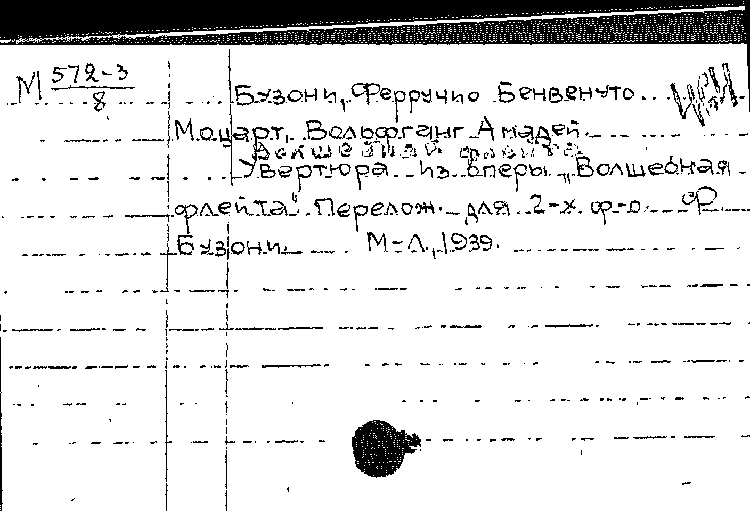 М 572-3
8
Бузони, Ферручио Бенвенуто
Моцарт, Вольфганг Амадей.
Волшебная флейта
Увертюра из оперы „Волшебная
флейта". Перелож. для 2-х ф-п. Ф
Бузони. М-Л., 1939.